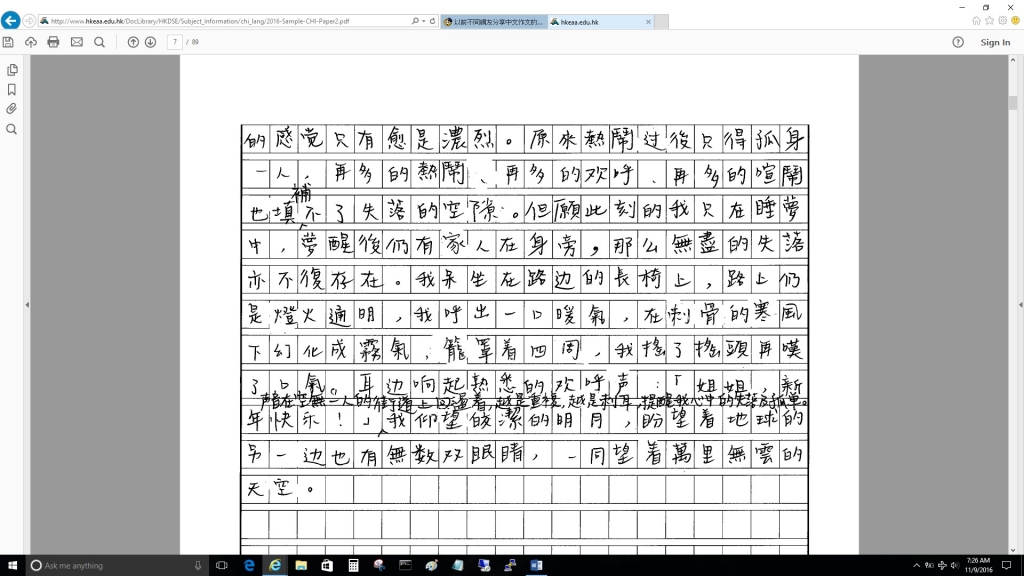 http://www.hkeaa.edu.hk/DocLibrary/HKDSE/Subject_Information/chi_lang/2016-Sample-CHI-Paper2.pdf
以前不同網友分享中文作文的...
hkeaa.edu.hk
7 / 89
Sign In
的感觉只有愈是濃烈。原來熱鬧过後只得孤身
一人，再多的熱鬧、再多的欢呼、再多的喧鬧
補
也填不了失落的空隙。但願此刻的我只在睡夢
中，夢醒後仍有家人在身旁，那么無盡的失落
亦不復存在。我呆坐在路边的長椅上，路上仍
是燈火通明，我呼出一口暖氣，在刺骨的寒風
下幻化成霧氣，籠罩着四周，我搖了搖頭再嘆
了口氣。耳边响起熟悉的欢呼声：「姐姐，新
聲音在空無一人的街道上回盪着，越是重複，越是刺耳，提醒我心中的失落及孤單。
年快乐！」我仰望皎潔的明月，盼望着地球的
另一边也有無数双眼睛，一同望着萬里無雲的
天空。
Ask me anything
7:26 AM
11/9/2016